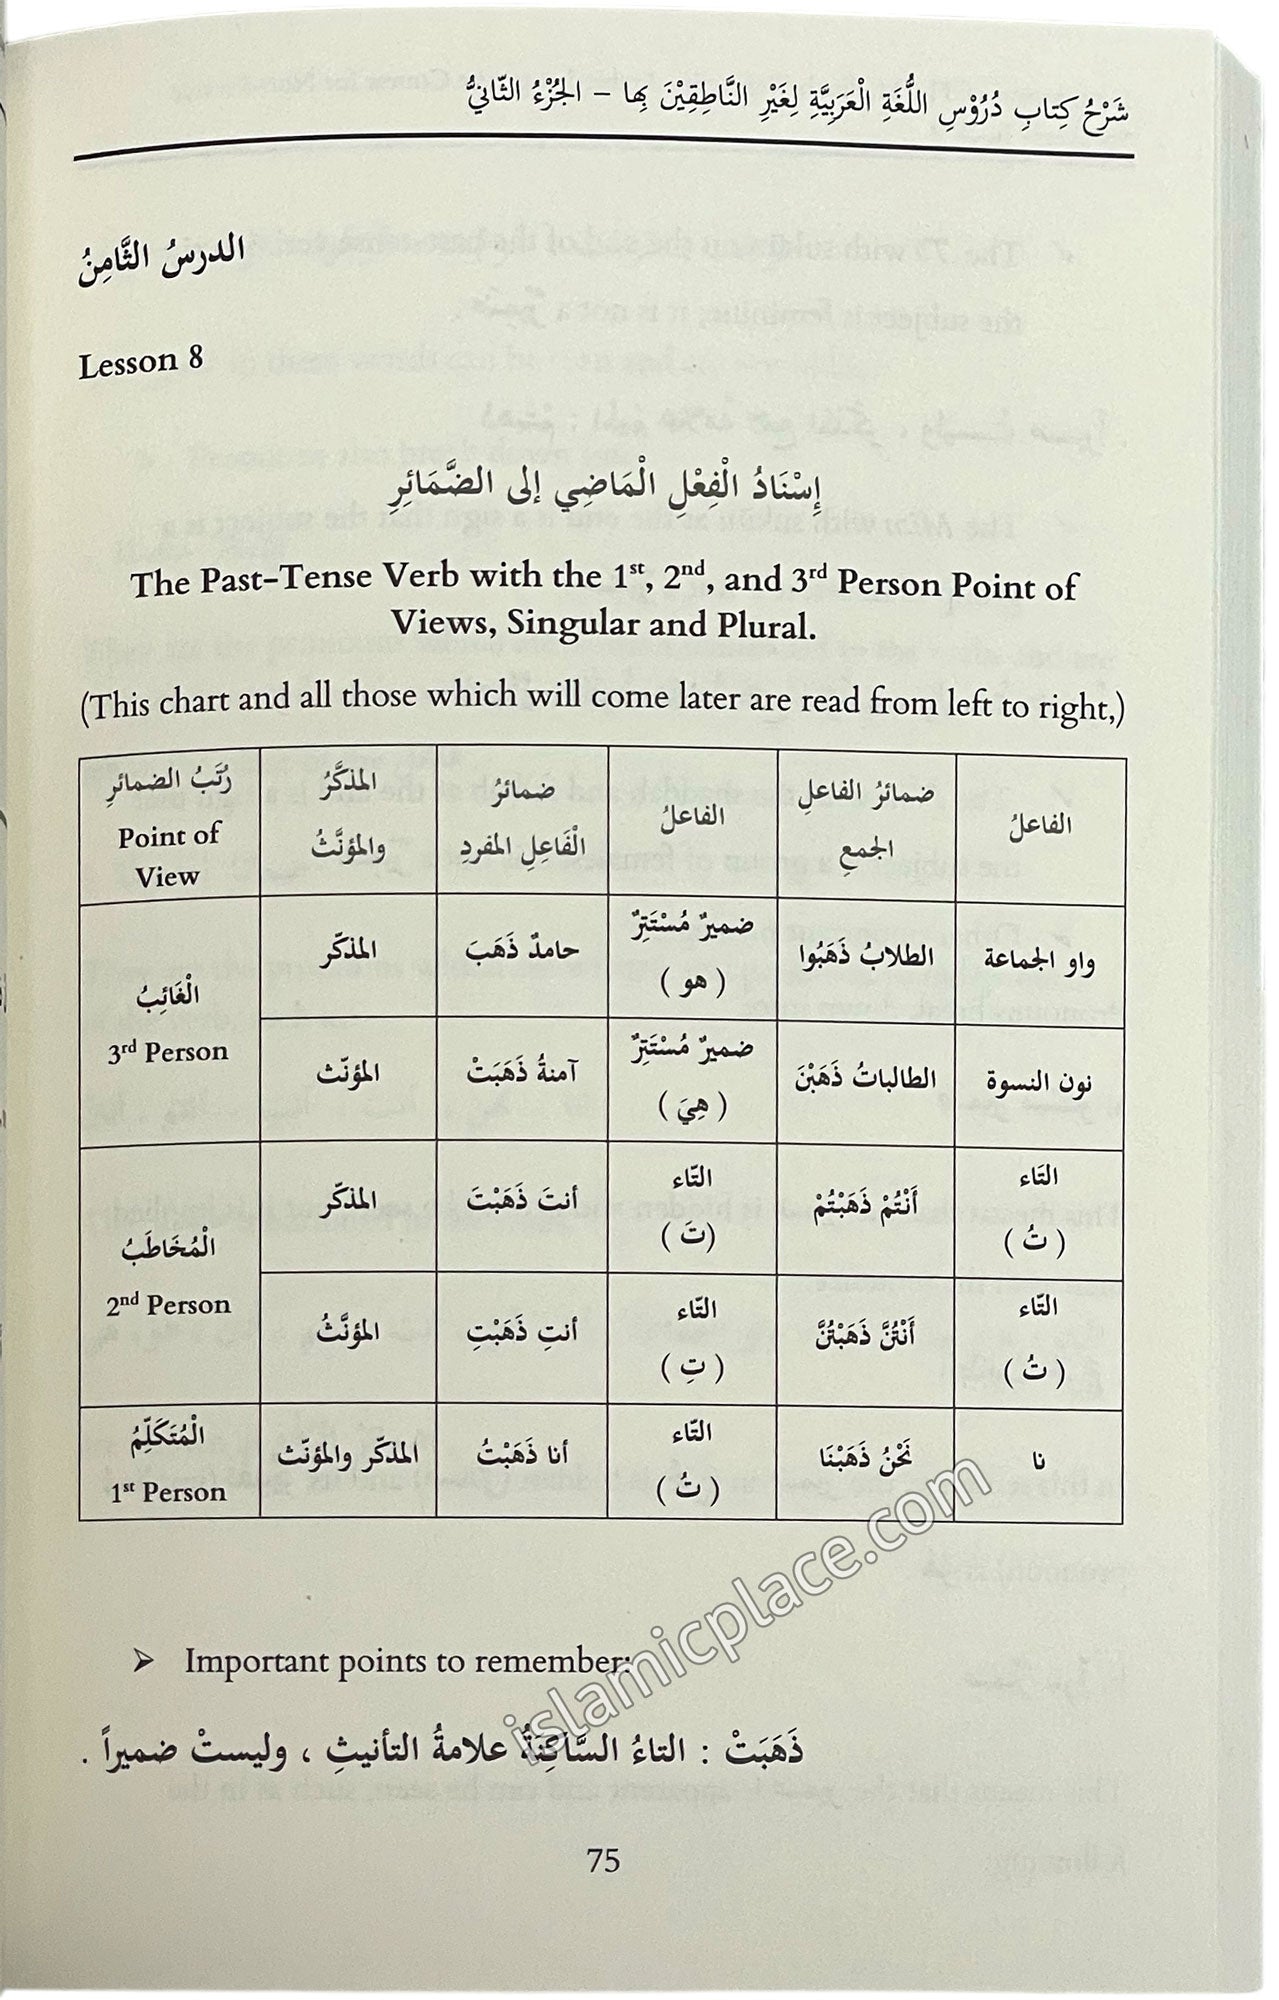 شَرْحُ كِتابِ دُرُوْسِ اللُّغَةِ الْعَرَبِيَّةِ لِغَيْرِ النَّاطِقِيْنَ بِها – الجُزْءُ الثّانيُّ
الدرسُ الثَّامِنُ
Lesson 8
إِسْنَادُ الْفِعْلِ الْمَاضِي إلى الضَّمَائِرِ
The Past-Tense Verb with the 1st, 2nd, and 3rd Person Point of
Views, Singular and Plural.
(This chart and all those which will come later are read from left to right,)
رُتَبُ الضمائرِ
Point of
View
المذكَّرُ
والمؤنَّثُ
ضمائرُ
الْفَاعِلِ المفردِ
الفاعلُ
ضمائرُ الفاعلِ
الجمعِ
الفاعلُ
الْغَائِبُ
3rd Person
المذكّر
حامدٌ ذَهَبَ
ضميرٌ مُسْتَتِرٌ
( هو )
الطلابُ ذَهَبُوا
واو الجماعة
المؤنّث
آمنةُ ذَهَبَتْ
ضميرٌ مُسْتَتِرٌ
( هِيَ )
الطالباتُ ذَهَبْنَ
نون النسوة
الْمُخَاطَبُ
2nd Person
المذكّر
أنتَ ذَهَبْتَ
التّاء
(تَ )
أَنْتُمْ ذَهَبْتُمْ
التَاء
( تُ )
المؤنَّثُ
أنتِ ذَهَبْتِ
التّاء
( تِ )
أَنْتُنَّ ذَهَبْتُنَّ
التّاء
( تُ )
الْمُتَكَلِّمُ
1st Person
المذكّر والمؤنّث
أنا ذَهَبْتُ
التّاء
( تُ )
نَحْنُ ذَهَبْنَا
نا
➢ Important points to remember:
ذَهَبَتْ : التاءُ السَّاكِنَةُ علامةُ التأنيثِ ، وليستْ ضميراً .
75
islamicplace.com